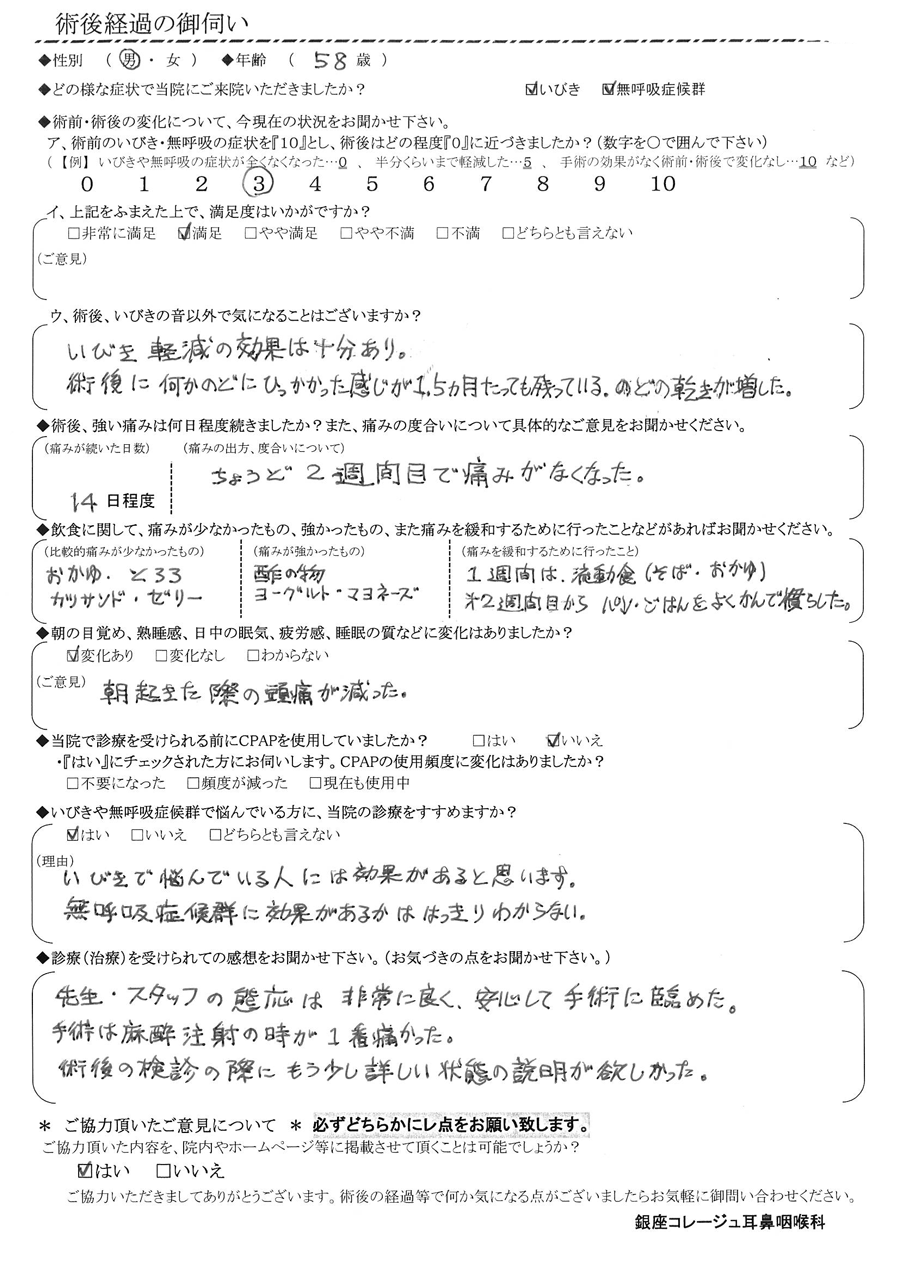 術後経過の御伺い
◆性別 （ 男 ・ 女 ） ◆年齢 （ 58 歳 ）
◆どの様な症状で当院にご来院いただきましたか？ ☑いびき ☑無呼吸症候群
◆術前・術後の変化について、今現在の状況をお聞かせ下さい。
ア、術前のいびき・無呼吸の症状を『10』とし、術後はどの程度『0』に近づきましたか？（数字を〇で囲んで下さい）
（【例】 いびきや無呼吸の症状が全くなくなった…0 、 半分くらいまで軽減した…5 、 手術の効果がなく術前・術後で変化なし…10 など）
0 1 2 3 4 5 6 7 8 9 10
イ、上記をふまえた上で、満足度はいかがですか？
□非常に満足 ☑満足 □やや満足 □やや不満 □不満 □どちらとも言えない
（ご意見）
ウ、術後、いびきの音以外で気になることはございますか？
いびき軽減の効果は十分あり。
術後に何かのどにひっかかった感じが1,5ヵ月たっても残っている。のどの乾きが増した。
◆術後、強い痛みは何日程度続きましたか？また、痛みの度合いについて具体的なご意見をお聞かせください。
（痛みが続いた日数） （痛みの出方、度合いについて）
ちょうど2週間目で痛みがなくなった。
14 日程度
◆飲食に関して、痛みが少なかったもの、強かったもの、また痛みを緩和するために行ったことなどがあればお聞かせください。
（比較的痛みが少なかったもの） （痛みが強かったもの） （痛みを緩和するために行ったこと）
おかゆ・とろろ 酢の物 1週間は、流動食（そば・おかゆ）
カツサンド・ゼリー ヨーグルト・マヨネーズ ※2週間目から パン・ごはんをよくかんで慣らした。
◆朝の目覚め、熟睡感、日中の眠気、疲労感、睡眠の質などに変化はありましたか？
☑変化あり □変化なし □わからない
（ご意見） 朝起きた際の頭痛が減った。
◆当院で診療を受けられる前にCPAPを使用していましたか？ □はい ☑いいえ
・『はい』にチェックされた方にお伺いします。CPAPの使用頻度に変化はありましたか？
□不要になった □頻度が減った □現在も使用中
◆いびきや無呼吸症候群で悩んでいる方に、当院の診療をすすめますか？
☑はい □いいえ □どちらとも言えない
（理由）
いびきで悩んでいる人には効果があると思います。
無呼吸症候群に効果があるかははっきりわからない。
◆診療（治療）を受けられての感想をお聞かせ下さい。（お気づきの点をお聞かせ下さい。）
先生・スタッフの態応は非常に良く、安心して手術に臨めた。
手術は麻酔注射の時が1番痛かった。
術後の検診の際にもう少し詳しい状態の説明が欲しかった。
＊ ご協力頂いたご意見について ＊ 必ずどちらかにレ点をお願い致します。
ご協力頂いた内容を、院内やホームページ等に掲載させて頂くことは可能でしょうか？
☑はい □いいえ
ご協力いただきましてありがとうございます。術後の経過等で何か気になる点がございましたらお気軽に御問い合わせください。
銀座コレージュ耳鼻咽喉科